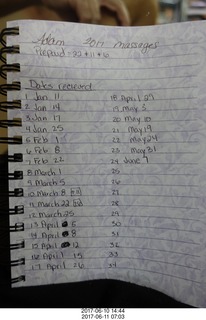 Adam 2017 massages
Prepaid = 22 + 11 + 6
Dates received
1 Jan 11 18 April 29
2 Jan 14 19 May 3
3 Jan 17 20 May 10
4 Jan 25 21 May 19
5 Feb 1 22 May 24
6 Feb 8 23 May 31
7 Feb 22 24 June 7
8 March 1 25
9 March 5 26
10 March 8 27
11 March 22 28
12 March 25 29
13 April 6 30
14 April 8 31
15 April 12 32
16 April 15 33
17 April 26 34
2017-06-10 14:44
2017-06-11 07:03